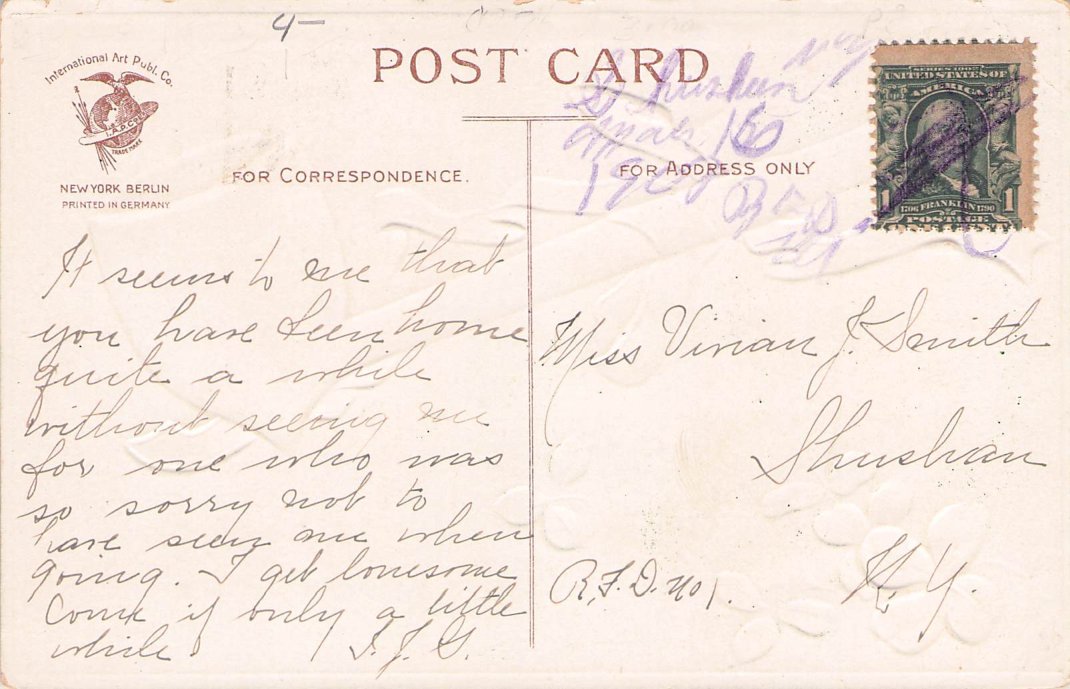 4—
International Art Publ. Co.
I.A.P.Co.
TRADE MARK
NEW YORK BERLIN
PRINTED IN GERMANY
POST CARD
FOR CORRESPONDENCE.
FOR ADDRESS ONLY
Shushan NY
Mar. 16
190
RFD
SERIES 1902
UNITED STATES OF
AMERICA
1 1
1706 FRANKLIN 1790
POSTAGE
It seems to me that
you have been home
quite a while
without seeing me
for one who was
so sorry not to
have seen me when
going. I get lonesome
Come if only a little
while. J. G.
Miss Vivian J. Smith
Shushan
R.F.D. No 1.
N.Y.